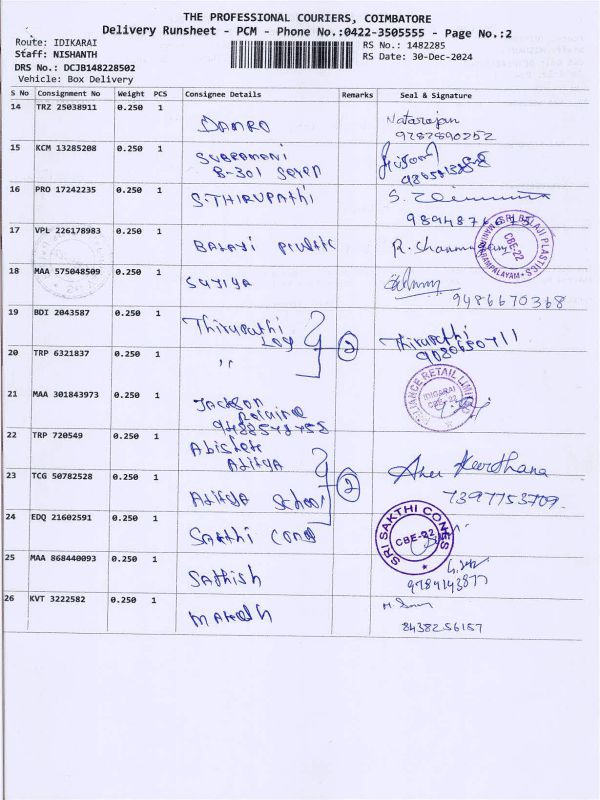 THE PROFESSIONAL COURIERS, COIMBATORE
Delivery Runsheet - PCM - Phone No.:0422-3505555 - Page No.:2
Route: IDIKARAI
Staff: NISHANTH
DRS No.: DCJB148228502
Vehicle: Box Delivery
RS No.: 1482285
RS Date: 30-Dec-2024
S No Consignment No Weight PCS Consignee Details Remarks Seal & Signature
14 TRZ 25038911 0.250 1 DAMRO Natarajan
9787890252
15 KCM 13285208 0.250 1 SUBRAMANI
B-301
16 PRO 17242235 0.250 1 S.THIRUPAThi S.
17 VPL 226178983 0.250 1 BALAJi R. Shanmugam
SRI BALAJI PLASTICS
CBE-22
18 MAA 575048509 0.250 1 SUJIYA
9486670368
19 BDI 2043587 0.250 1 Thirupathi Thirupathi
Log
20 TRP 6321837 0.250 1 ,, 2
RELIANCE RETAIL LIMITED
IDIGARAI
CBE-22
21 MAA 301843973 0.250 1 JACKSON
22 TRP 720549 0.250 1
Aditya
23 TCG 50782528 0.250 1 Aditya School 2 Keerthana
7397753709
24 EDQ 21602591 0.250 1 SAKthi Cone
SRI SAKTHI CONES
CBE-22
25 MAA 868440093 0.250 1 SAthish
9789143877
26 KVT 3222582 0.250 1
8438256157